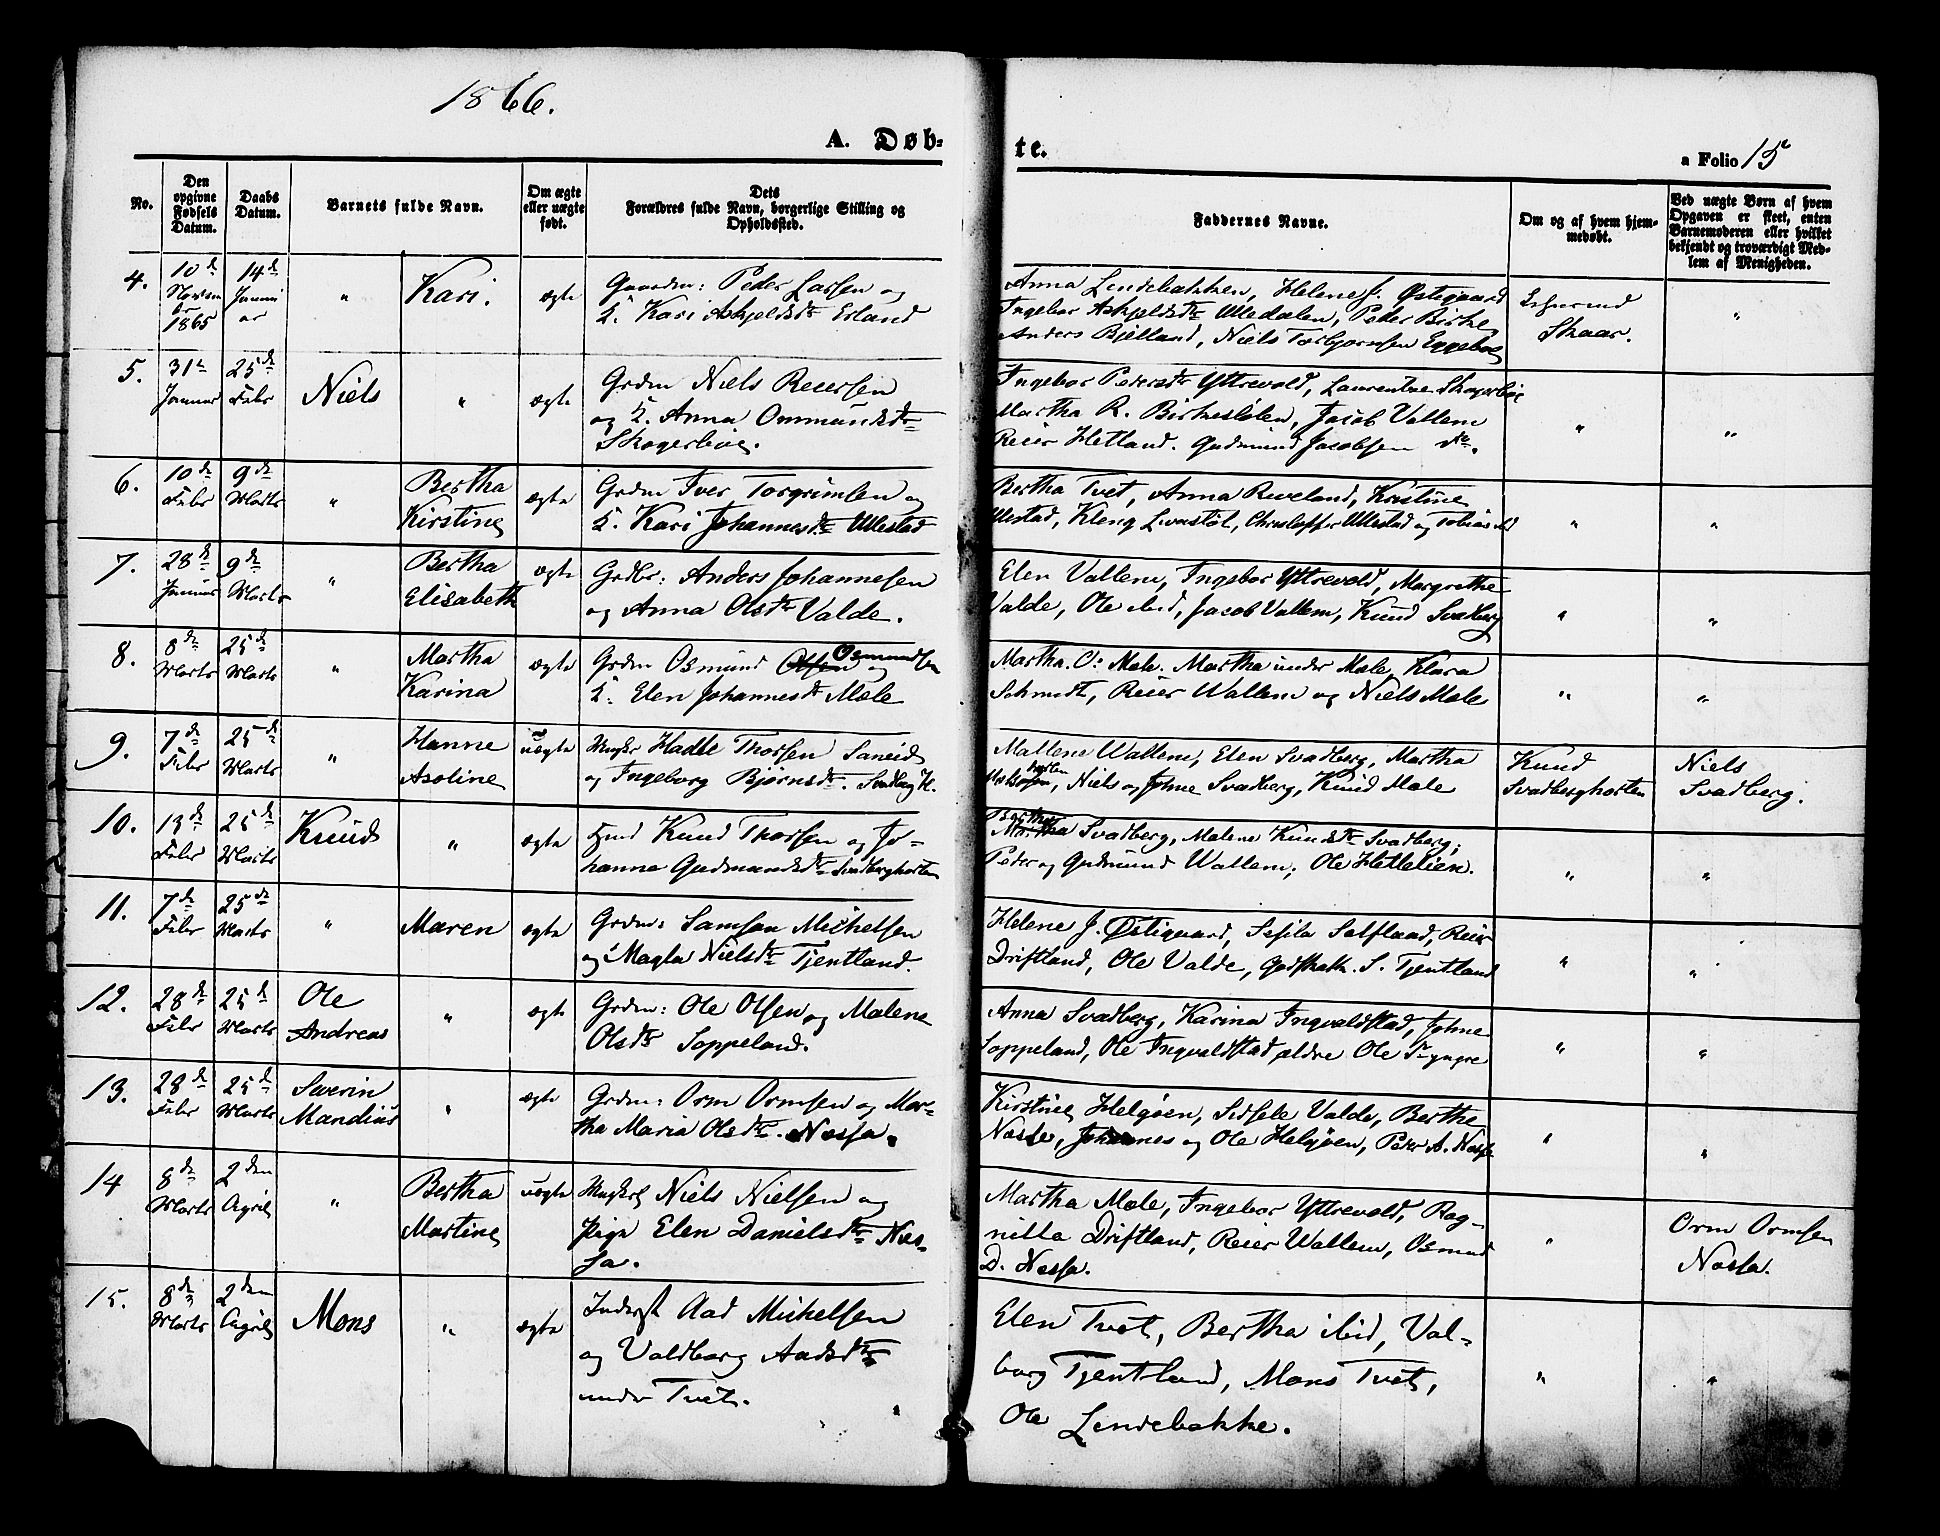 1866.
A. Døb-
te.
a Folio 15
No.
Den opgivne Fødsels Datum.
Daabs Datum.
Barnets fulde Navn.
Om ægte eller uægte født.
Dets Forældres fulde Navn, borgerlige Stilling og Opholdssted.
Faddernes Navne.
Om og af hvem hjemmedøbt.
Ved uægte Børn af hvem Opgaven er skeet, enten Barnemoderen eller hvilket bekjendt og troværdigt Medlem af Menigheden.
4. 10de Novem br 1865 14de Januar " Kari. ægte
Gaardm: Peder Larsen og
K. Kari Askjeldsdtr Erland
Anna Lindebækken, Helene J. Østigaard
Ingebor Askjeldsdtr Ulledalen, Peder Birke
Anders Bjelland, Niels Torbjørnsen Eggebø
Skaar. "
5. 31te Januar 25de Febr Niels " ægte
Grdm Niels Reiersen
og K. Anna Ommundsdtr
Skogerboe.
Ingebor Pedersdtr Yttrevold, Laurentze Skogerboe
Martha R. Birkeslølen, Jacob Vallem
Reier Hetland. Gudmund Jacobsen
" "
6. 10de Febr 9de Marts " Bertha Kirstine ægte
Grdm Iver Torgrimsen og
K. Kari Johannesdtr Ullestad
Bertha Tvet, Anna Riveland, Kristine
Ullestad, Kleng Livastøl, Christoffer Ullestad og Tobias ibid
" "
7. 28de Januar 9de Marts " Bertha Elisabeth ægte
Grdbr: Anders Johannesen
og Anna Olsdtr Valde.
Elen Vallem, Ingebor Yttrevold, Margrethe
Valde, Ole ibid, Jacob Vallem, Knud Svadberg
" "
8. 8de Marts 25de Marts " Martha Karina ægte
Grdm Osmund Olsen Osmundsen og
K: Elen Johannesdtr Mæle
Martha. O: Mæle. Martha under Mæle, Klara
Schmidt, Reier Wallem og Niels Mæle
" "
9. 7de Febr 25de Marts " Hanne Asoline uægte
Ungkr Hadle Thorsen Saneid
og Ingeborg Bjørnsdtr. Svadberg H.
Mallene Wallem, Elen Svadberg, Martha
Niels og Johne Svadberg, Knud Mæle
Knud
Svadberghorten
Niels
Svadberg.
10. 13de Febr 25de Marts Knud " ægte
Hmd Knud Thorsen og Jo-
hanne Gudmundsdtr Svadberghorten
Bertha
Martha Svadberg, Malene Knudsdtr Svadberg;
Peder og Gudmund Wallem; Ole Hetlelien.
" "
11. 7de Febr 25de Marts " Maren ægte
Grdm: Samson Michelsen
og Magla Nielsdtr Tjentland.
Helene J. Østigaard, Sesila Selfland, Reier
Driftland, Ole Valde, Godskalk. S. Tjentland
" "
12. 28de Febr 25de Marts Ole Andreas " ægte
Grdm: Ole Olsen og Malene
Olsdtr Soppeland.
Anna Svadberg, Karina Ingvaldstad, Johne
Soppeland, Ole Ingvaldstad ældre Ole I yngre
" "
13. 28de Febr 25de Marts Severin Mandius " ægte
Grdm: Orm Ormsen og Mar-
tha Maria Olsdtr. Næssa.
Kirstine Helgøen, Sidsele Valde, Berthe
Næsse, Johannes og Ole Helgøen, Peder A. Næsse
" "
14 8de Marts 2den April " Bertha Martine uægte
Ungkrl Niels Nielsen og
pige Elen Danielsdtr Næs-
sa.
Martha Mæle, Ingebor Yttrevold, Rag-
nilla Driftland, Reier Wallem, Osmund
D. Næssa.
"
Orm Ormsen
Næssa.
15. 8de Marts 2den April Mons " ægte
Inderst Aad Michelsen
og Valdborg Aadsdtr
under Tvet.
Elen Tvet, Bertha ibid, Val-
borg Tjentland, Mons Tvet,
Ole Lindebække.
" "